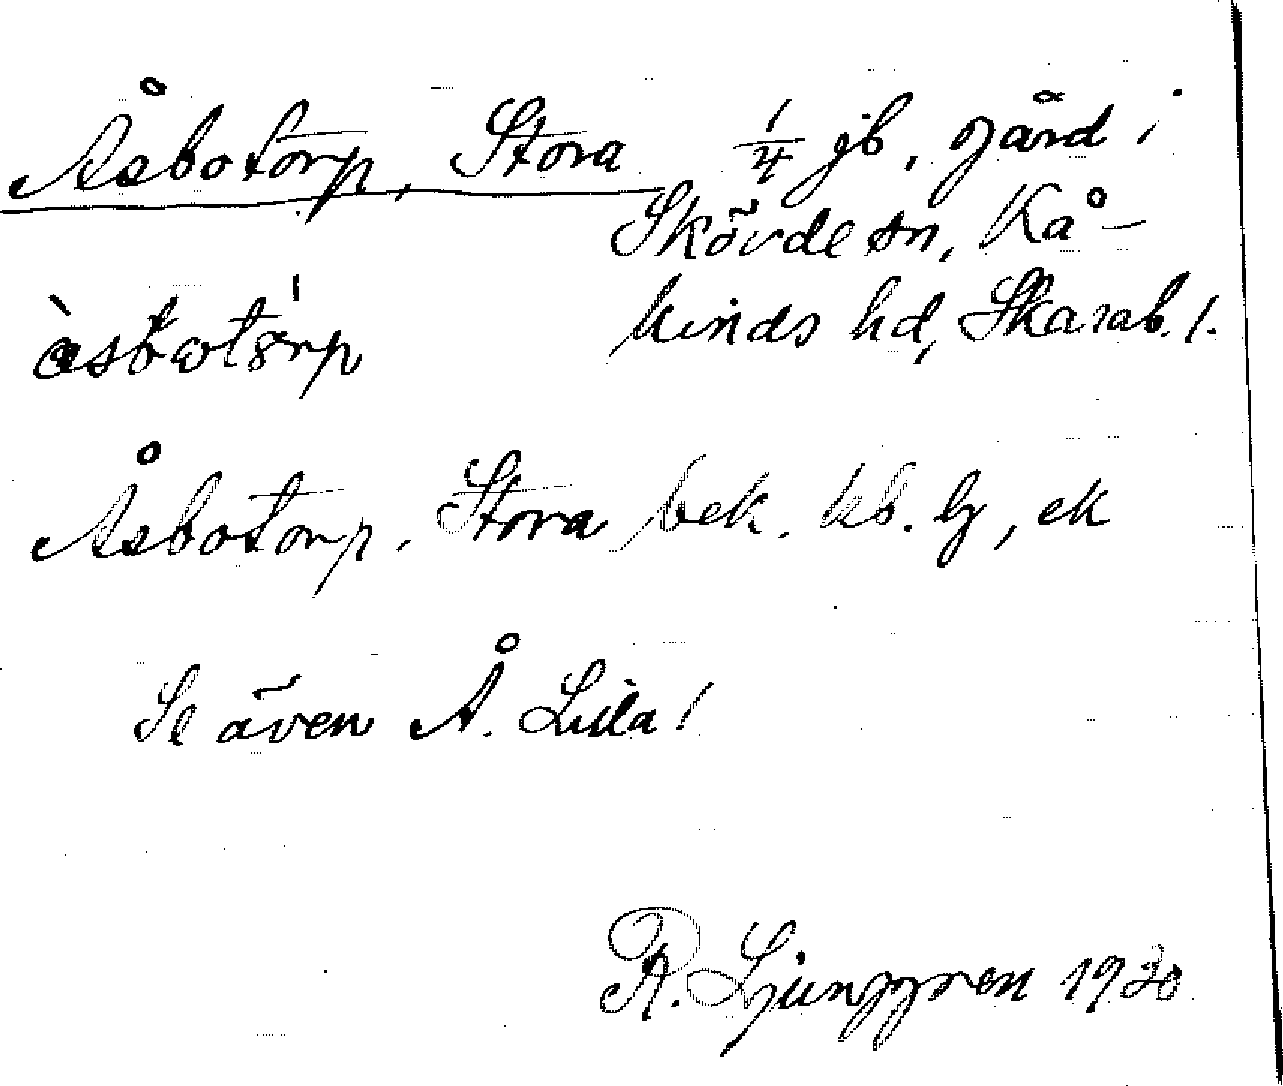 Åsbotorp, Stora 1/4 jb. gård i
Skövde sn, Kå-
kinds hd, Skarab. l.
Åsbotorp, Stora bek. kb. by, ek
Se även Å. Lilla!
R. Ljunggren 1920